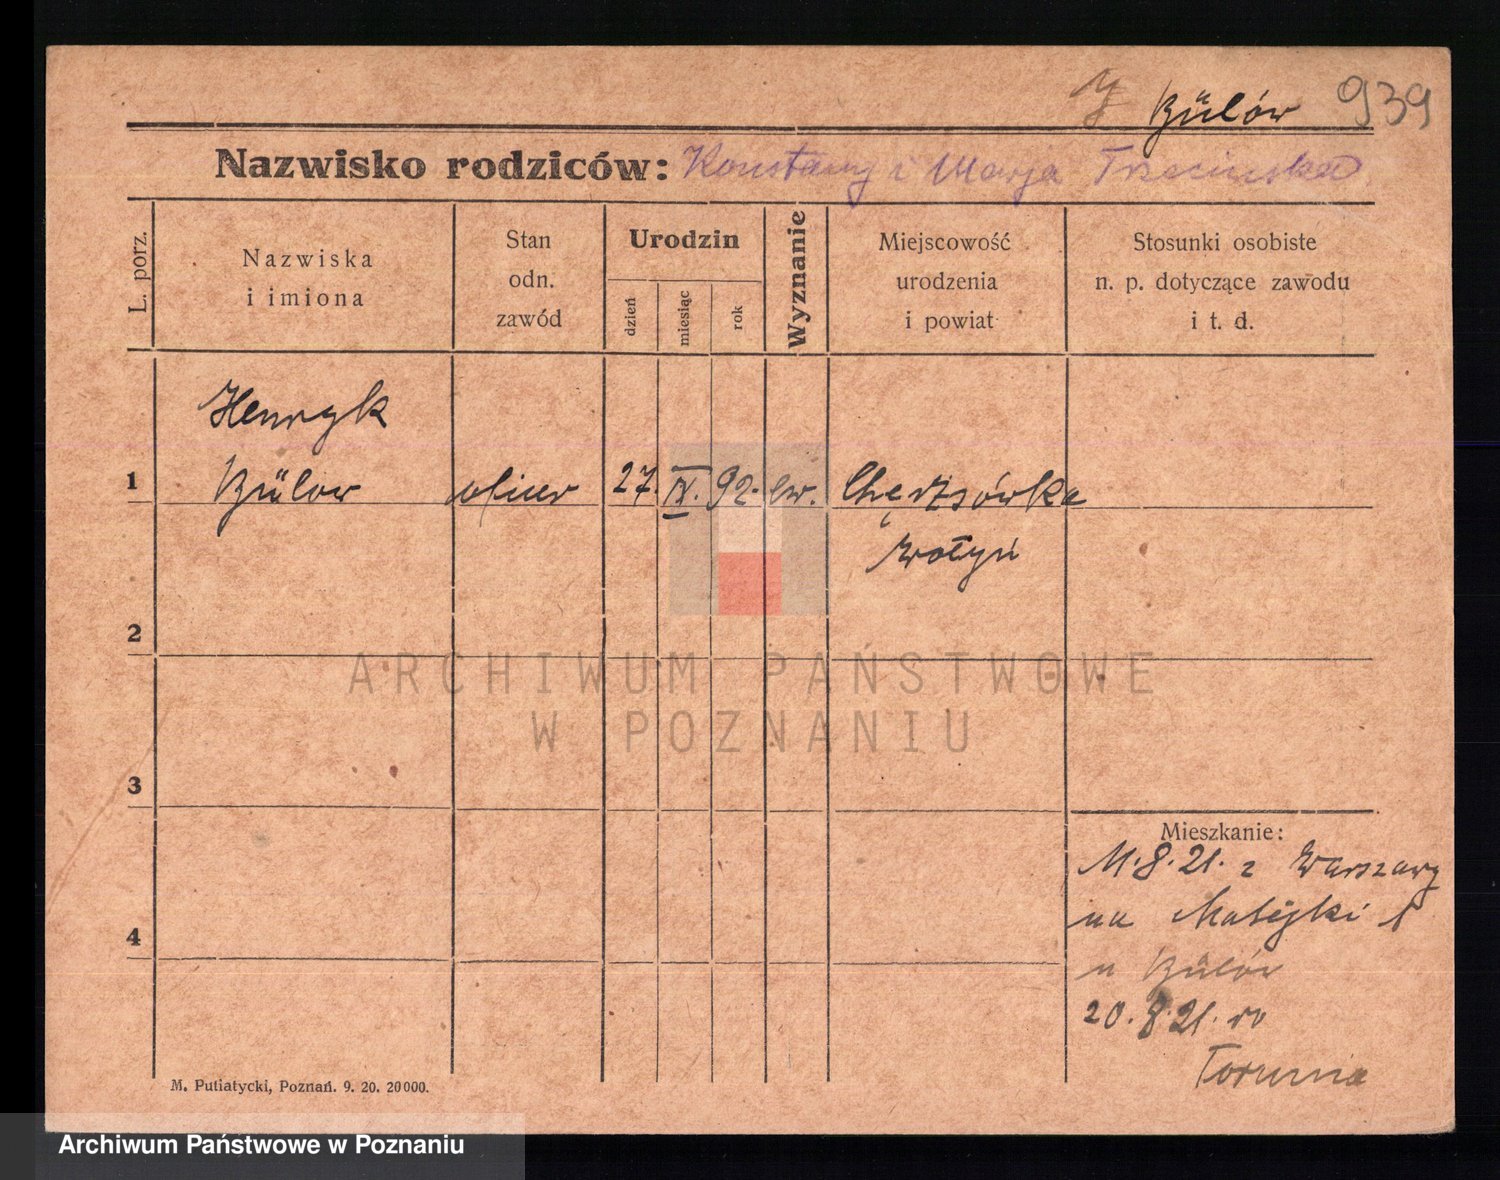 Bülów 939
Nazwisko rodziców: Konstanty i Marja Trzcinska
L. porz.
Nazwiska
i imiona
Stan
odn.
zawód
Urodzin
dzień
miesiąc
rok
Wyznanie
Miejscowość
urodzenia
i powiat
Stosunki osobiste
n. p. dotyczące zawodu
i t. d.
Henryk
1 Bülow oficer 27. IV. 92. ew.
Wołyń
2
ARCHIWUM PAŃSTWOWE
W POZNANIU
3
Mieszkanie:
11.8.21. z Warszawy
na Matejki
u Bülów
4
20.8.21. do
Torunia
M. Putiatycki, Poznań. 9. 20. 20000.
Archiwum Państwowe w Poznaniu